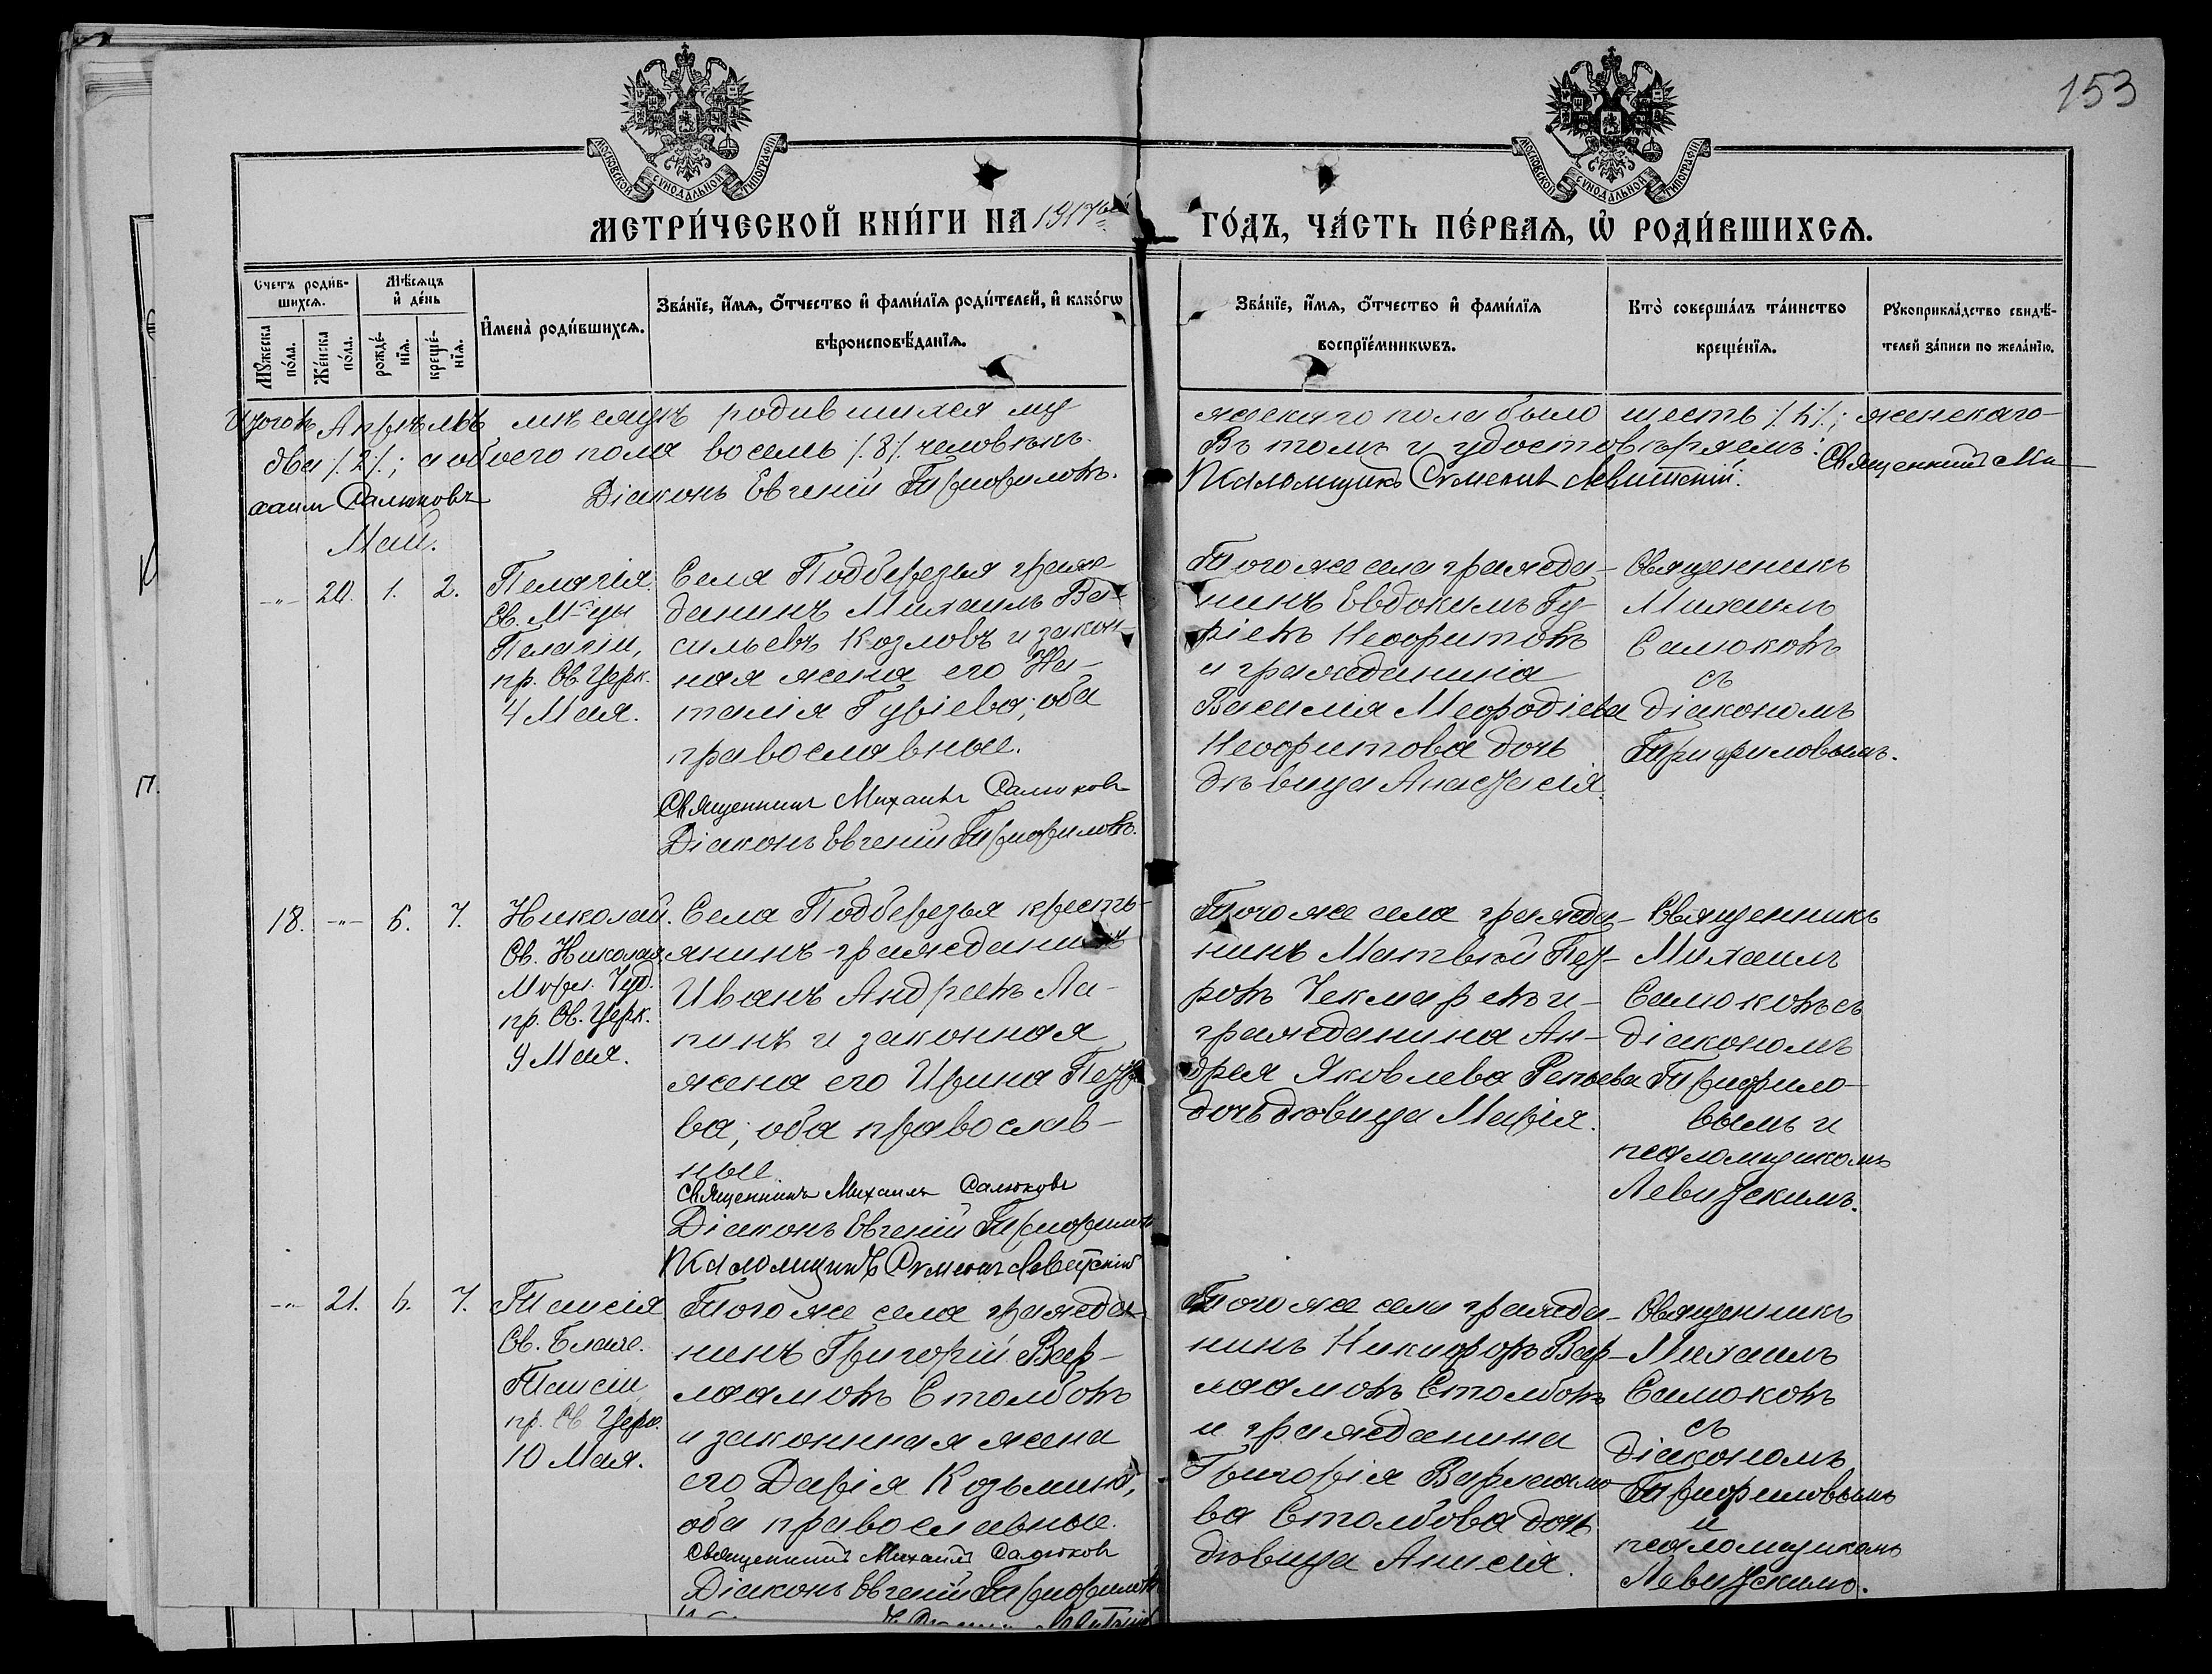 153
МОСКОВСКОЙ СѴНОДАЛЬНОЙ ТИПОГРАФІИ
МОСКОВСКОЙ СѴНОДАЛЬНОЙ ТИПОГРАФІИ
МЕТРИ́ЧЕСКОЙ КНИ́ГИ НА 1917ый ГО́ДЪ, ЧА́СТЬ ПЕ́РВАѦ, Ѡ҆ РОДИ́ВШИХСѦ.
Счетъ роди́в-
шихсѧ.
Мꙋ́жеска
по́ла.
Же́нска
по́ла.
Мѣ́сѧцъ
и҆ де́нь
рожде́-
нїѧ.
креще́-
нїѧ.
И҆мена̀ роди́вшихсѧ.
Зва́нїе, и҆́мѧ, ѻ҆́тчество и҆ фами́лїѧ роди́телей, и҆ како́гѡ
вѣроисповѣ́данїѧ.
Зва́нїе, и҆́мѧ, ѻ҆́тчество и҆ фами́лїѧ
воспрїе́мникѡвъ.
Кто̀ соверша́лъ та́инство
креще́нїѧ.
Рꙋкоприкла́дство свидѣ́-
телей за́писи по жела́нїю.
Итого въ Апрѣлѣ мѣсяцѣ родившихся му
жескаго пола было шесть /6/; женскаго
два /2/; а обоего пола восемь /8/ человѣкъ.
Въ томъ и удостовѣряемъ: Священникъ Ми
хаилъ Салюковъ Діаконъ Евгеній Трифиловъ.
Псаломщикъ Сѵмеонъ Левитскій.
Май.
-"- 20. 1. 2.
Пелагія.
Св. М-цы
Пелагіи,
пр. Св. Церк.
4 Мая.
Села Подберезья граж
данинъ Михаилъ Ва-
сильевъ Козловъ и закон-
ная жена его На-
талія Гуріева; оба
православные.
Священникъ Михаилъ Салюковъ
Діаконъ Евгеній Трифиловъ.
Того же села гражда-
нинъ Евдокимъ Гу-
ріевъ Неофитовъ
и гражданина
Василія Меѳодіева
Неофитова дочь
дѣвица Анастасія.
Священникъ
Михаилъ
Салюковъ
съ
діакономъ
Трифиловымъ.
18. -"- 6. 7.
Николай.
Св. Николая
Мѵрл. Чуд.
пр. Св. Церк.
9 Мая.
Села Подберезья кресть-
янинъ-гражданинъ
Иванъ Андреевъ Ла-
пинъ и законная
жена его Ирина Петро
ва; оба православ-
ные.
Священникъ Михаилъ Салюковъ
Діаконъ Евгеній Трифиловъ
Псаломщикъ Сѵмеонъ Левитскій
Того же села гражда-
нинъ Матвѣй Пет-
ровъ Чекмаревъ и
гражданина Ан-
дрея Яковлева Репьева
дочь дѣвица Марія.
Священникъ
Михаилъ
Салюковъ съ
діакономъ
Трифило-
вымъ и
псаломщикомъ
Левитскимъ.
-"- 21. 6. 7.
Таисія
Св. Блаж.
Таисіи
пр. Св. Церк.
10 Мая.
Того же села гражда-
нинъ Григорій Вар-
лаамовъ Столбовъ
и законная жена
его Дарія Козьмина;
оба православные.
Священникъ Михаилъ Салюковъ
Діаконъ Евгеній Трифиловъ
Того же села гражда-
нинъ Никифоръ Вар-
лаамовъ Столбовъ
и гражданина
Григорія Варлаамо
ва Столбова дочь
дѣвица Анисія.
Священникъ
Михаилъ
Салюковъ
съ
діакономъ
Трифиловымъ
и
псаломщикомъ
Левитскимъ.